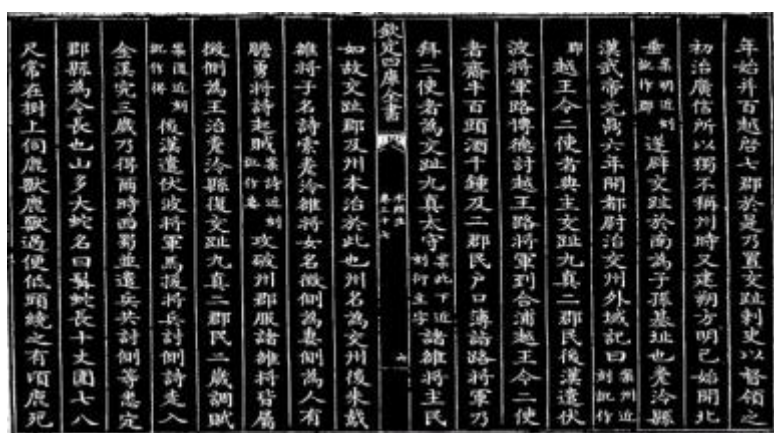 年始并百越啓七郡於是乃置交趾刺史以督領之
初治廣信所以獨不稱州時又建朔方明已始開北
垂案垂近刻訛作郵遂辟交趾於南為子孫基址也𥹆泠縣
漢武帝元鼎六年開都尉治交州外域記曰案州近刻訛作
郡越王令二使者典主交趾九真二郡民後漢遣伏
波將軍路博德討越王路將軍到合浦越王令二使
者齎牛百頭酒千鍾及二郡民户口簿詣路將軍乃
拜二使者為交趾九真太守案此下近刻衍主字諸雒將主民
欽定四庫全書
水經注
卷三十七
如故交趾郡及州本治於此也州名為交州後朱䳒
雒將子名詩索𥹆泠雒將女名徵側為妻側為人有
膽勇將詩起賊案詩近刻訛作兵攻破州郡服諸雒將皆屬
徵側為王治𥹆泠縣復交趾九真二郡民二歲調賦
案復近刻訛作得後漢遣伏波將軍馬援將兵討側詩走入
金溪究三歲乃得爾時西蜀並遣兵共討側等悉定
郡縣為令長也山多大蛇名曰髯蛇長十丈圍七八
尺常在樹上伺鹿獸鹿獸過便低頭繞之有頃鹿死